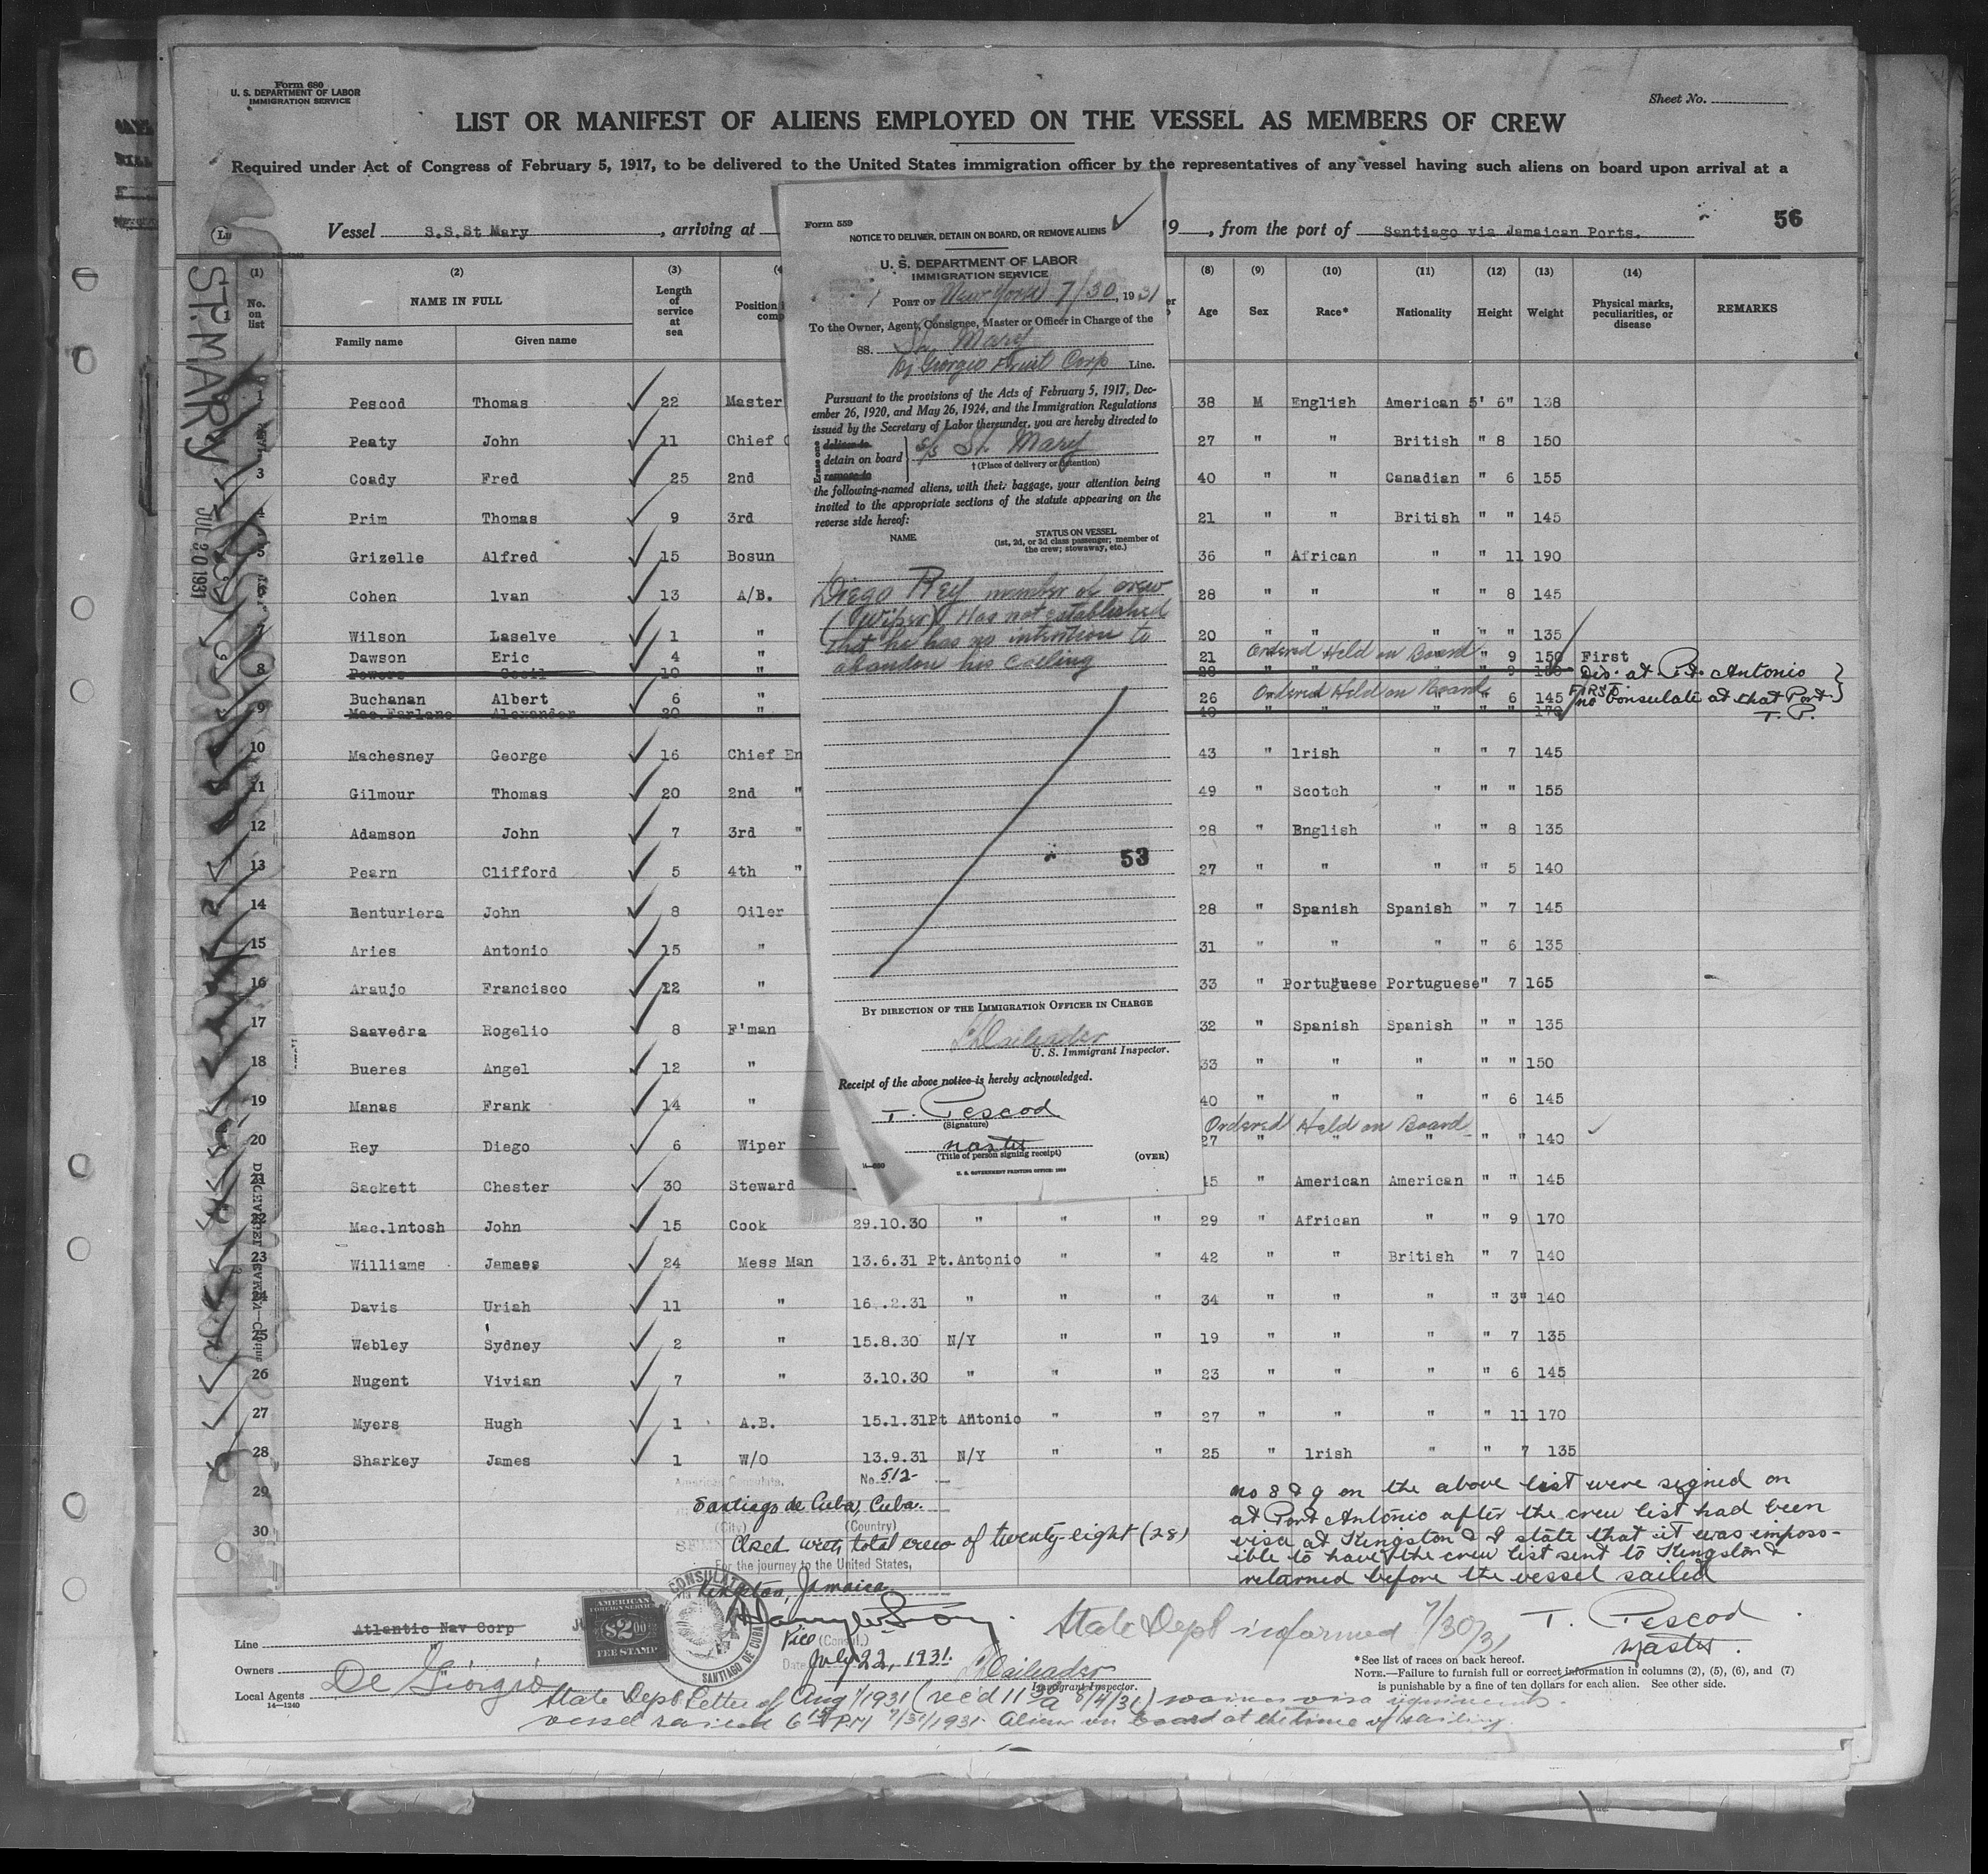 Form 680
U. S. DEPARTMENT OF LABOR
IMMIGRATION SERVICE
Sheet No.
LIST OR MANIFEST OF ALIENS EMPLOYED ON THE VESSEL AS MEMBERS OF CREW
Required under Act of Congress of February 5, 1917, to be delivered to the United States immigration officer by the representatives of any vessel having such aliens on board upon arrival at a
Vessel S.S.St Mary, arriving at 19, from the port of Santiago via Jamaican Ports. 56
ST. MARY
JUL 30 1931
(1) (2) (3) (8) (9) (10) (11) (12) (13) (14)
No. on list NAME IN FULL Family name Given name Length of service at sea Position Age Sex Race* Nationality Height Weight Physical marks, peculiarities, or disease REMARKS
1 Pescod Thomas 22 Master 38 M English American 5' 6" 138
Peaty John 11 Chief 27 " " British " 8 150
3 Coady Fred 25 2nd 40 " " Canadian " 6 155
4 Prim Thomas 9 3rd 21 " " British " " 145
5 Grizelle Alfred 15 Bosun 36 " African " " 11 190
Cohen lvan 13 A/B. 28 " " " " 8 145
7 Wilson Laselve 1 " 20 " " " " " 135
Dawson Eric 4 " 21 Ordered Held on Board " 9 150 First
8 Powers Cecil 10 " 28 Dis. at Pt. Antonio
Buchanan Albert 6 " 26 Ordered Held on Board " 6 145 FIRST
9 Mac.Farlane Alexander 20 " 40 " " " " " 170 no Consulate at that Port
T. P.
10 Machesney George 16 Chief En 43 " lrish " " 7 145
11 Gilmour Thomas 20 2nd " 49 " Scotch " " " 155
12 Adamson John 7 3rd " 28 " English " " 8 135
13 Pearn Clifford 5 4th " 27 " " " " 5 140
14 Benturiera John 8 Oiler 28 " Spanish Spanish " 7 145
15 Aries Antonio 15 " 31 " " " " 6 135
16 Araujo Francisco 12 " 33 " Portuguese Portuguese " 7 165
17 Saavedra Rogelio 8 F'man 32 " Spanish Spanish " " 135
18 Bueres Angel 12 " 33 " " " " " 150
19 Manas Frank 14 " 40 " " " " 6 145
Ordered Held on Board
20 Rey Diego 6 Wiper 27 " " " " " 140
21 Sackett Chester 30 Steward 45 " American American " " 145
22 Mac.lntosh John 15 Cook 29.10.30 " " " 29 " African " " 9 170
23 Williams Jamees 24 Mess Man 13.6.31 Pt.Antonio " " 42 " " British " 7 140
24 Davis Uriah 11 " 16..2.31 " " " 34 " " " " 3" 140
25 Webley Sydney 2 " 15.8.30 N/Y " " 19 " " " " 7 135
26 Nugent Vivian 7 " 3.10.30 " " " 23 " " " " 6 145
27 Myers Hugh 1 A.B. 15.1.31 Pt Antonio " " 27 " " " " 11 170
28 Sharkey James 1 W/O 13.9.31 N/Y " " 25 " lrish " " 7 135
29
30
Form 559
NOTICE TO DELIVER, DETAIN ON BOARD, OR REMOVE ALIENS
U. S. DEPARTMENT OF LABOR
IMMIGRATION SERVICE
PORT OF New York 7/30, 1931
To the Owner, Agent, Consignee, Master or Officer in Charge of the
SS. St. Mary
Di Giorgio Fruit Corp Line.
Pursuant to the provisions of the Acts of February 5, 1917, Dec-
ember 26, 1920, and May 26, 1924, and the Immigration Regulations
issued by the Secretary of Labor thereunder, you are hereby directed to
Erase one
deliver to
detain on board s/s St. Mary
remove to
† (Place of delivery or detention)
the following-named aliens, with their baggage, your attention being
invited to the appropriate sections of the statute appearing on the
reverse side hereof:
NAME
STATUS ON VESSEL
(1st, 2d, or 3d class passenger; member of
the crew; stowaway, etc.)
Diego Rey member of crew
(Wiper) Has not established
that he has no intention to
abandon his calling
53
BY DIRECTION OF THE IMMIGRATION OFFICER IN CHARGE
U. S. Immigrant Inspector.
Receipt of the above notice is hereby acknowledged.
T. Pescod
(Signature)
Master
(Title of person signing receipt)
(OVER)
U. S. GOVERNMENT PRINTING OFFICE: 1930
American Consulate,
No. 512
Santiago de Cuba, Cuba.
(City) (Country)
Closed with total crew of twenty-eight (28)
For the journey to the United States,
Kingston, Jamaica
Vice (Consul.)
Date July 22, 1931.
no 8 & 9 on the above list were signed on
at Port Antonio after the crew list had been
visa at Kingston & I state that it was imposs-
ible to have the crew list sent to Kingston &
returned before the vessel sailed
T. Pescod
Master.
AMERICAN
FOREIGN SERVICE
$2.00
FEE STAMP
CONSULATE
SANTIAGO DE CUBA
State Dept informed 7/30/31
Line Atlantic Nav Corp
Owners "
Local Agents De Giorgio
14—1240
Immigrant Inspector.
*See list of races on back hereof.
NOTE.—Failure to furnish full or correct information in columns (2), (5), (6), and (7)
is punishable by a fine of ten dollars for each alien. See other side.
State Dept Letter of Aug 1/1931 (rec'd 11 30 a 8/4/31) waives visa requirements.
vessel sailed 6 15 PM 7/31/1931. Alien on board at the time of sailing.